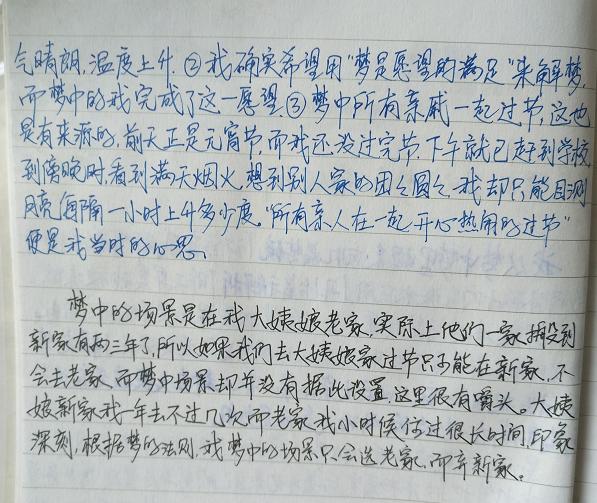 气晴朗,温度上升.②我确实希望用“梦是愿望的满足”来解梦,
而梦中的我完成了这一愿望.③梦中所有亲戚一起过节,这也
是有来源的,前天正是元宵节,而我还没过完节,下午就已赶到学校,
到傍晚时,看到满天烟火,想到别人家的团团圆圆,我却只能目测
月亮每隔一小时上升多少度,“所有亲人在一起开心热闹的过节”
便是我当时的心思。
梦中的场景是在我大姨娘老家,实际上他们一家搬到
新家有两三年了,所以如果我们去大姨娘家过节只可能在新家,不
会去老家,而梦中场景却并没有据此设置,这里很有嚼头。大姨
娘新家我一年去不过几次,而老家我小时候住过很长时间,印象
深刻,根据梦的法则,我梦中的场景只会选老家,而弃新家。